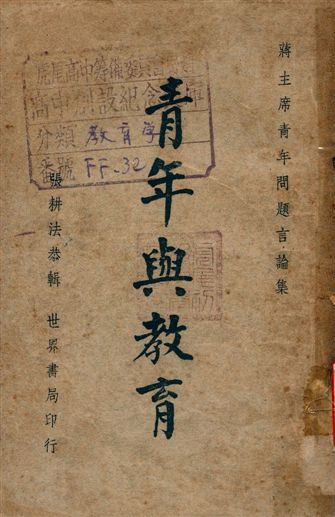 蔣主席青年問題言論集
青年與教育
張耕法恭輯　世界書局印行
虎尾高中籌備委員會
高中創設紀念
分類 教育學
番號 FF-32